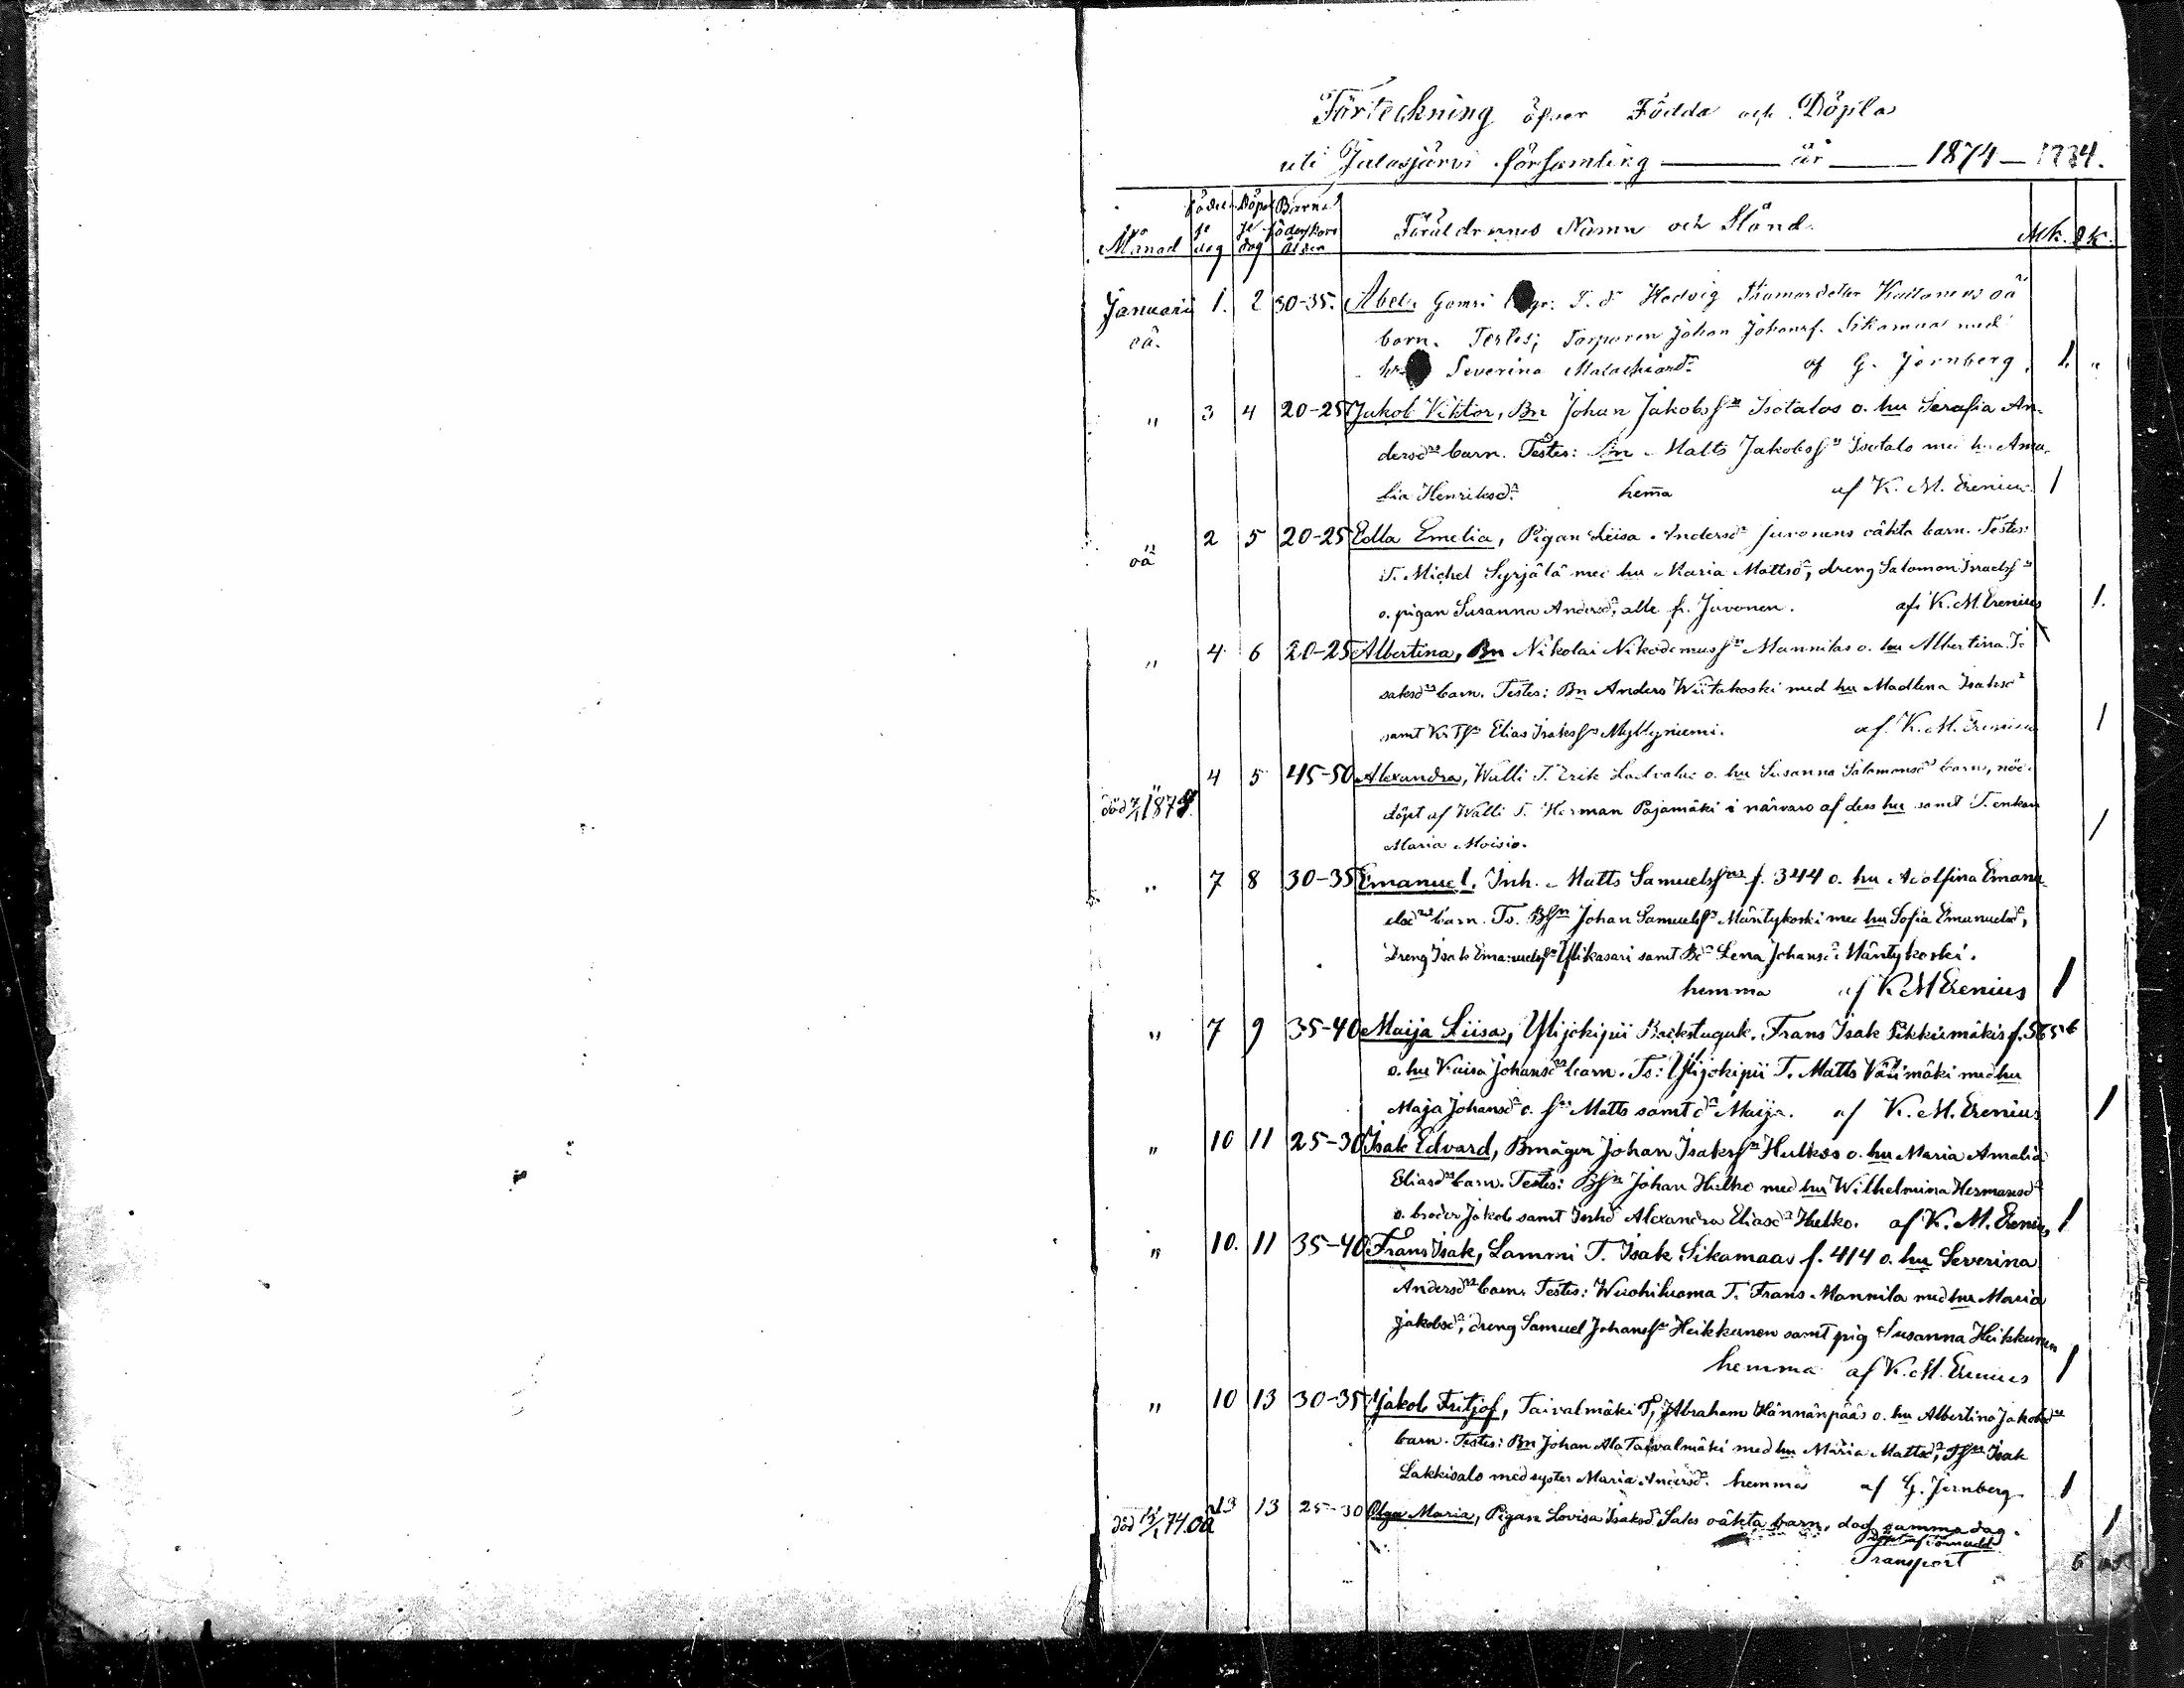 Förteckning öfver Födda och Döpta
uti Jalasjärvi församling — år — 1874 — 
Månad Födelse dag Döpelse dag Barnaföderskors ålder Föräldrarnes Namn och Stånd. Mk. Qk.
Januarii 1. 2 30-35. Abel, Hedvig oä
oä. barn. Testes; Torparen Johan Johansf. Sikamaa med
Severina Malachiasd:r af G. Jernberg. 1. "
" 3 4 20-25 Jakob Viktor, Bn Johan Jakobsf:n Isotalos o. hu Serafia An-
dersd:rs barn. Testes: Bn Matts Jakobsf:n Isotalo med hu Ama-
lia Henriksd:r hem̄a af K. M. Erenius. 1
" oä 2 5 20-25 Edla Emelia, Pigan Liisa Andersd:r Juvonens oäkta barn. Testes:
T. Michel Syrjälä med hu Maria Mattsd:r, dreng Salomon Israelsf:n
o. pigan Susanna Andersd:r, alle fr. Juvonen. af K. M. Erenius 1.
" 4 6 20-25 Albertina, Bn Nikolai Nikodemusf:n Mannilas o. hu Albertina I-
saksd:rs barn. Testes: Bn Anders Wiitakoski med hu Madlena Isaksd:r
samt Elias Isaksf:n Myllyniemi. af K. M. Erenius 1
" död 7/1 1874. 4 5 45-50 Alexandra, Walli T. Erik Ladvalas o. hu Susanna Salomonsd:rs barn, nöd-
döpt af Walli T. Herman Pajamäki i närvaro af dess hu samt T. enkan
Maria Moisio. 1
" 7 8 30-35 Emanuel, Inh. Matts Samuelsf:ns f. 344 o. hu Adolfina Emanu-
elsd:rs barn. Ts. Bf:n Johan Samuelsf:n Mäntykoski med hu Sofia Emanuelsd:r,
Dreng Isak Emanuelsf:n Ylikasari samt Bd:r Lena Johansd:r Mäntykoski.
hemma af K M Erenius 1
" 7 9 35-40 Maija Liisa, Ylijokipii Backstuguk. Frans Isak Pikkumäkis f. 565
o. hu Kaisa Johansd:rs barn. Ts: Ylijokipii T. Matts Välimäki med hu
Maja Johansd:r o. f:n Matts samt d:r Maija. af K. M. Erenius 1
" 10 11 25-30 Isak Edvard, Bmågen Johan Isaksf:n Hulkos o. hu Maria Amalia
Eliasd:rs barn. Testes: Bf:n Johan Hulko med hu Wilhelmina Hermansd:r
o. broder Jakob samt Alexandra Eliasd:r Hulko. af K. M. Erenius 1
" 10. 11 35-40 Frans Isak, Lammi T. Isak Sikamaas f. 414 o. hu Severina
Andersd:rs barn. Testes: Wuohiluoma T. Frans Mannila med hu Maria
Jakobsd:r, dreng Samuel Johansf:n Heikkunen samt pig Susanna Heikkunen
hemma af K. M. Erenius 1
" 10 13 30-35 Jakob Fritjof, Taivalmäki T. Abraham Hännänpääs o. hu Albertina Jakobsd:rs
barn. Testes: Bn Johan Ala Taivalmäki med hu Maria Mattsd:r, Tf:n Isak
Lakkisalo med syster Maria Andersd:r. hemma af G. Jernberg. 1
död 13/1 74. oä 13 13 25-30 Olga Maria, Pigan Lovisa Isaksd. Salos oäkta barn, dog samma dag. 1
döpt af
Transport 6